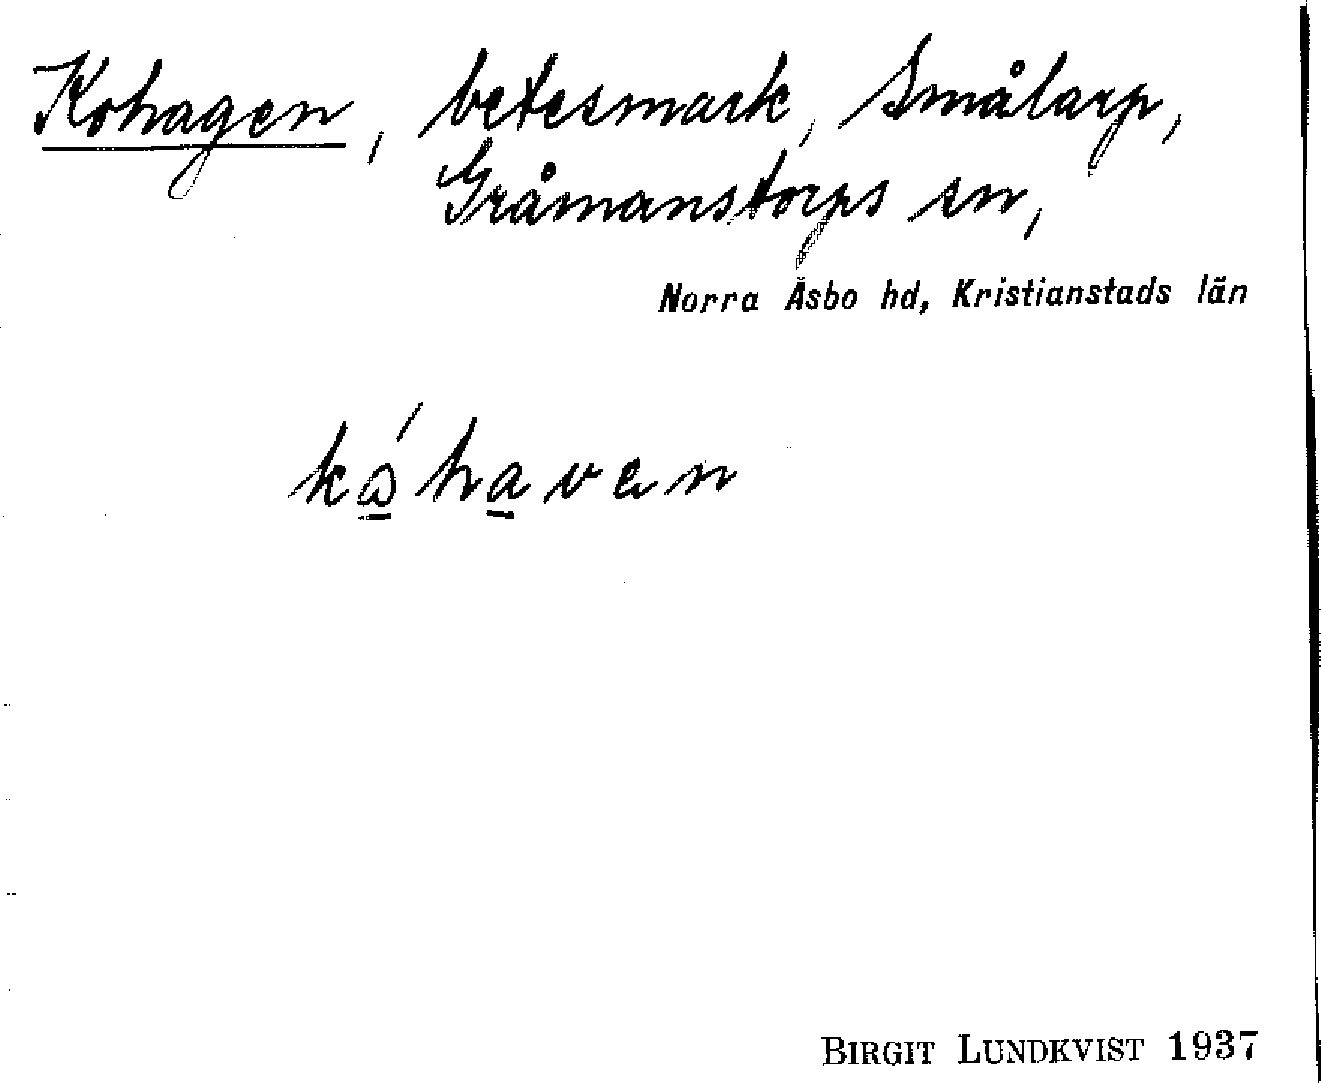 Kohagen, betesmark, Smålarp,
Gråmanstorps sn,
Norra Åsbo hd, Kristianstads län
kó̲ha̲ven
BIRGIT LUNDKVIST 1937